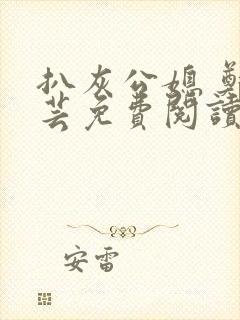 扒灰公媳 鄭
芸免費閱讀
安雷